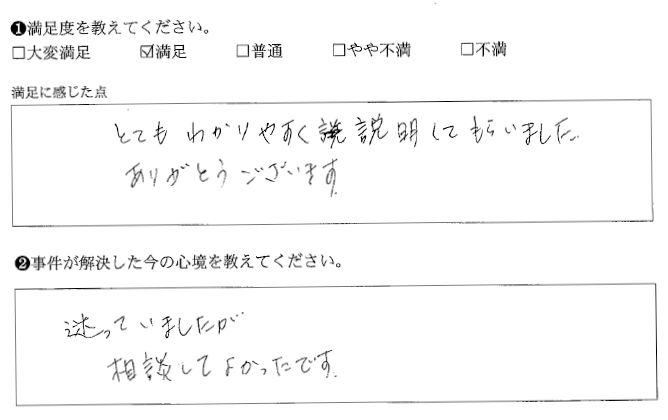 ❶満足度を教えてください。
□大変満足 ☑満足 □普通 □やや不満 □不満
満足に感じた点
とてもわかりやすく説明してもらいました。
ありがとうございます。
❷事件が解決した今の心境を教えてください。
迷っていましたが
相談してよかったです。